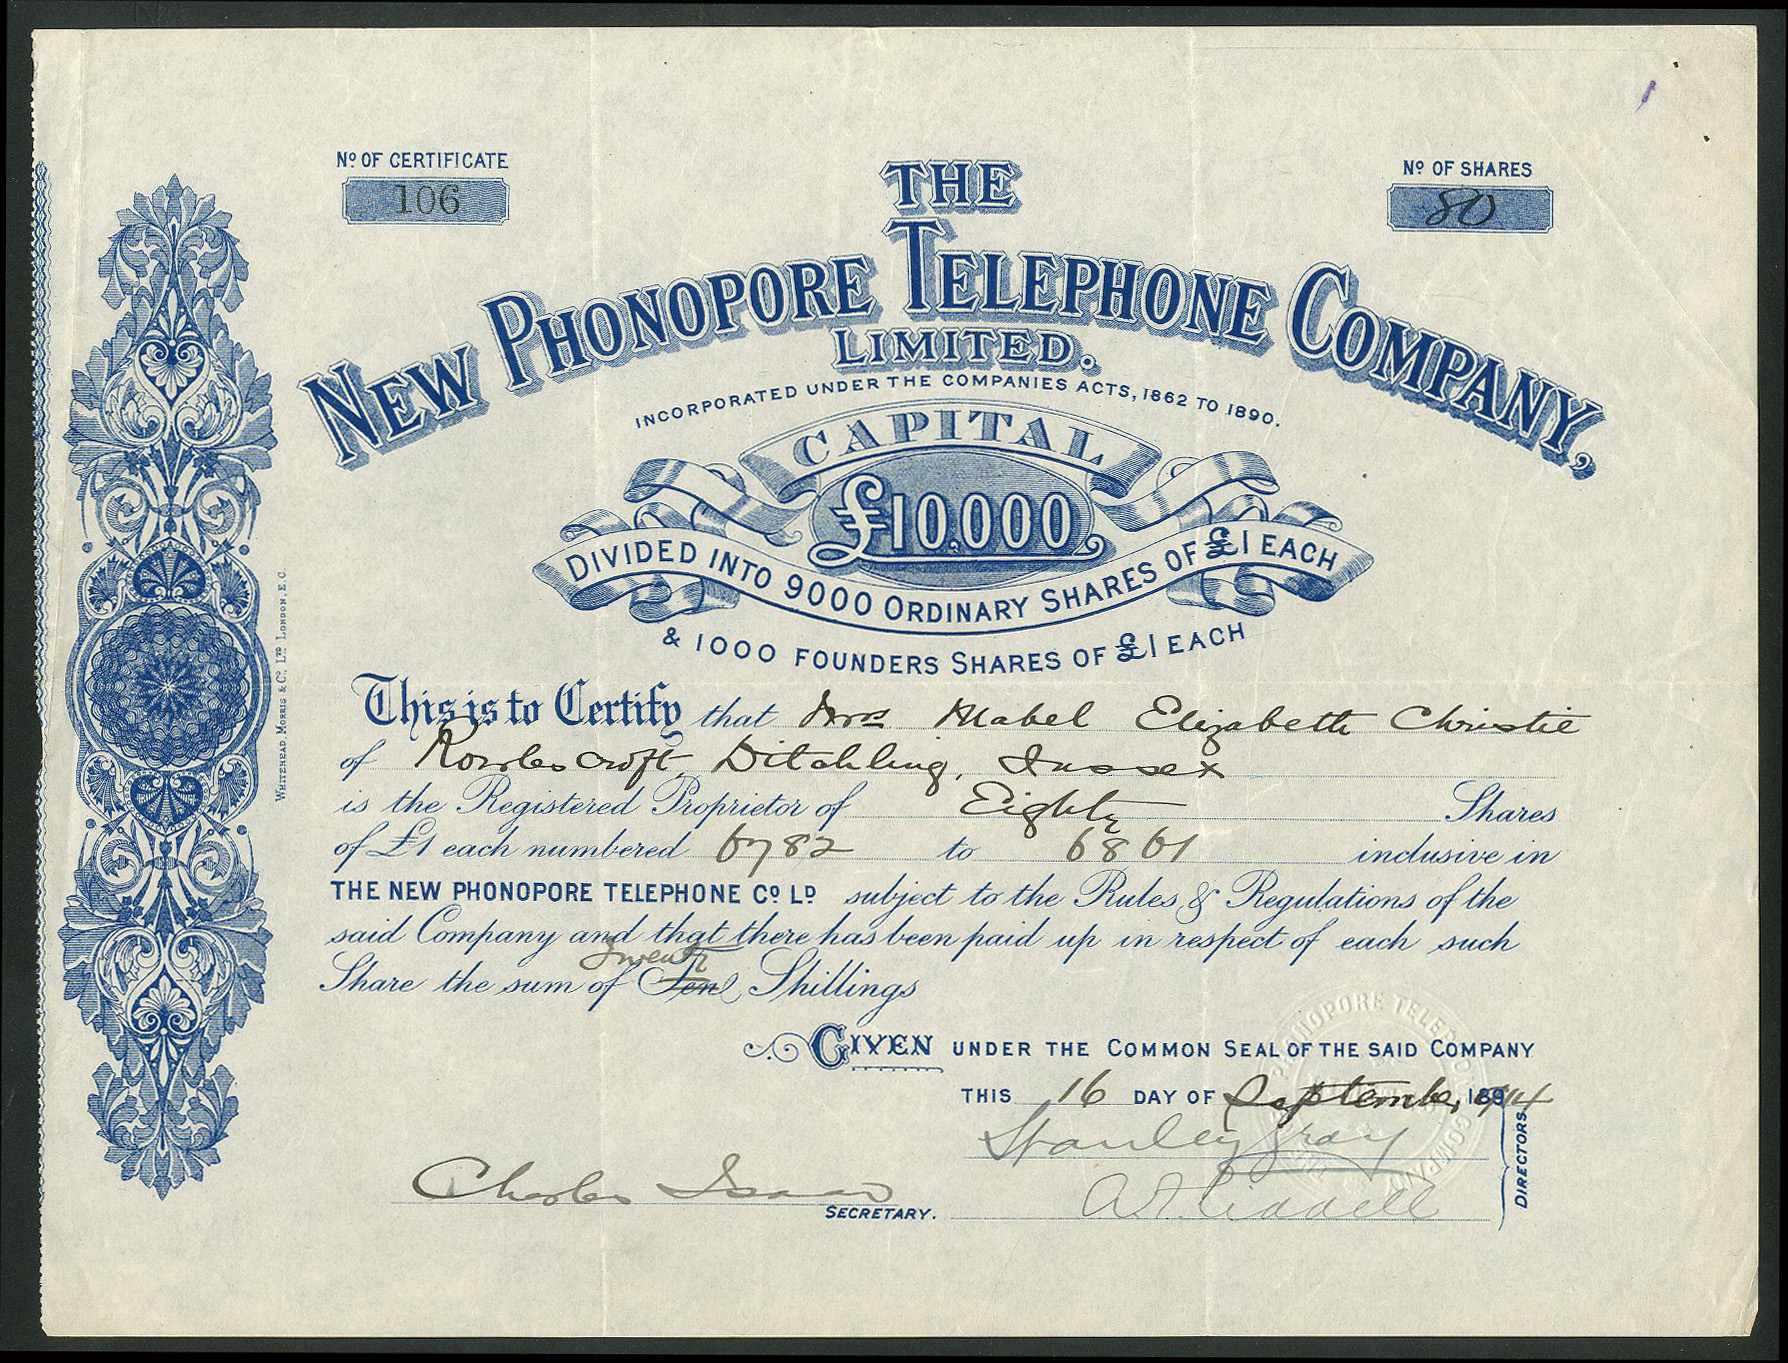 Nº OF CERTIFICATE
106
Nº OF SHARES
80
THE
NEW PHONOPORE TELEPHONE COMPANY,
LIMITED.
INCORPORATED UNDER THE COMPANIES ACTS, 1862 TO 1890.
CAPITAL
£10,000
DIVIDED INTO 9000 ORDINARY SHARES OF £1 EACH
& 1000 FOUNDERS SHARES OF £1 EACH
This is to Certify that Mrs Mabel Elizabeth Christie
of Ditchling, Sussex
is the Registered Proprietor of Eighty Shares
of £1 each numbered 6782 to 6861 inclusive in
THE NEW PHONOPORE TELEPHONE Cº Lᴰ subject to the Rules & Regulations of the
said Company and that there has been paid up in respect of each such
Twenty
Share the sum of Ten Shillings
GIVEN UNDER THE COMMON SEAL OF THE SAID COMPANY
THIS 16 DAY OF September, 1914
Stanley Gray
Charles Isaac
SECRETARY.
DIRECTORS.
WHITEHEAD, MORRIS & Cº, Lᵀᴰ LONDON, E.C.